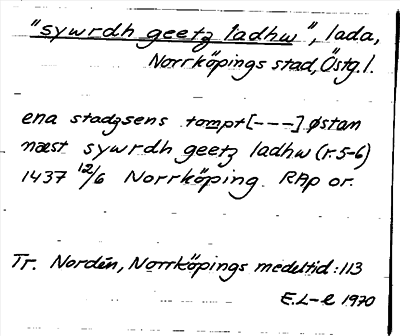 "sywrdh geetz ladhw", lada,
Norrköpings stad, Östg.l.
ena stadzsens tompt [---] østan
næst sywrdh geetz ladhw (r. 5-6)
1437 12/6 Norrköping. RAp or.
Tr. Nordén, Norrköpings medeltid: 113
E.L-e 1970